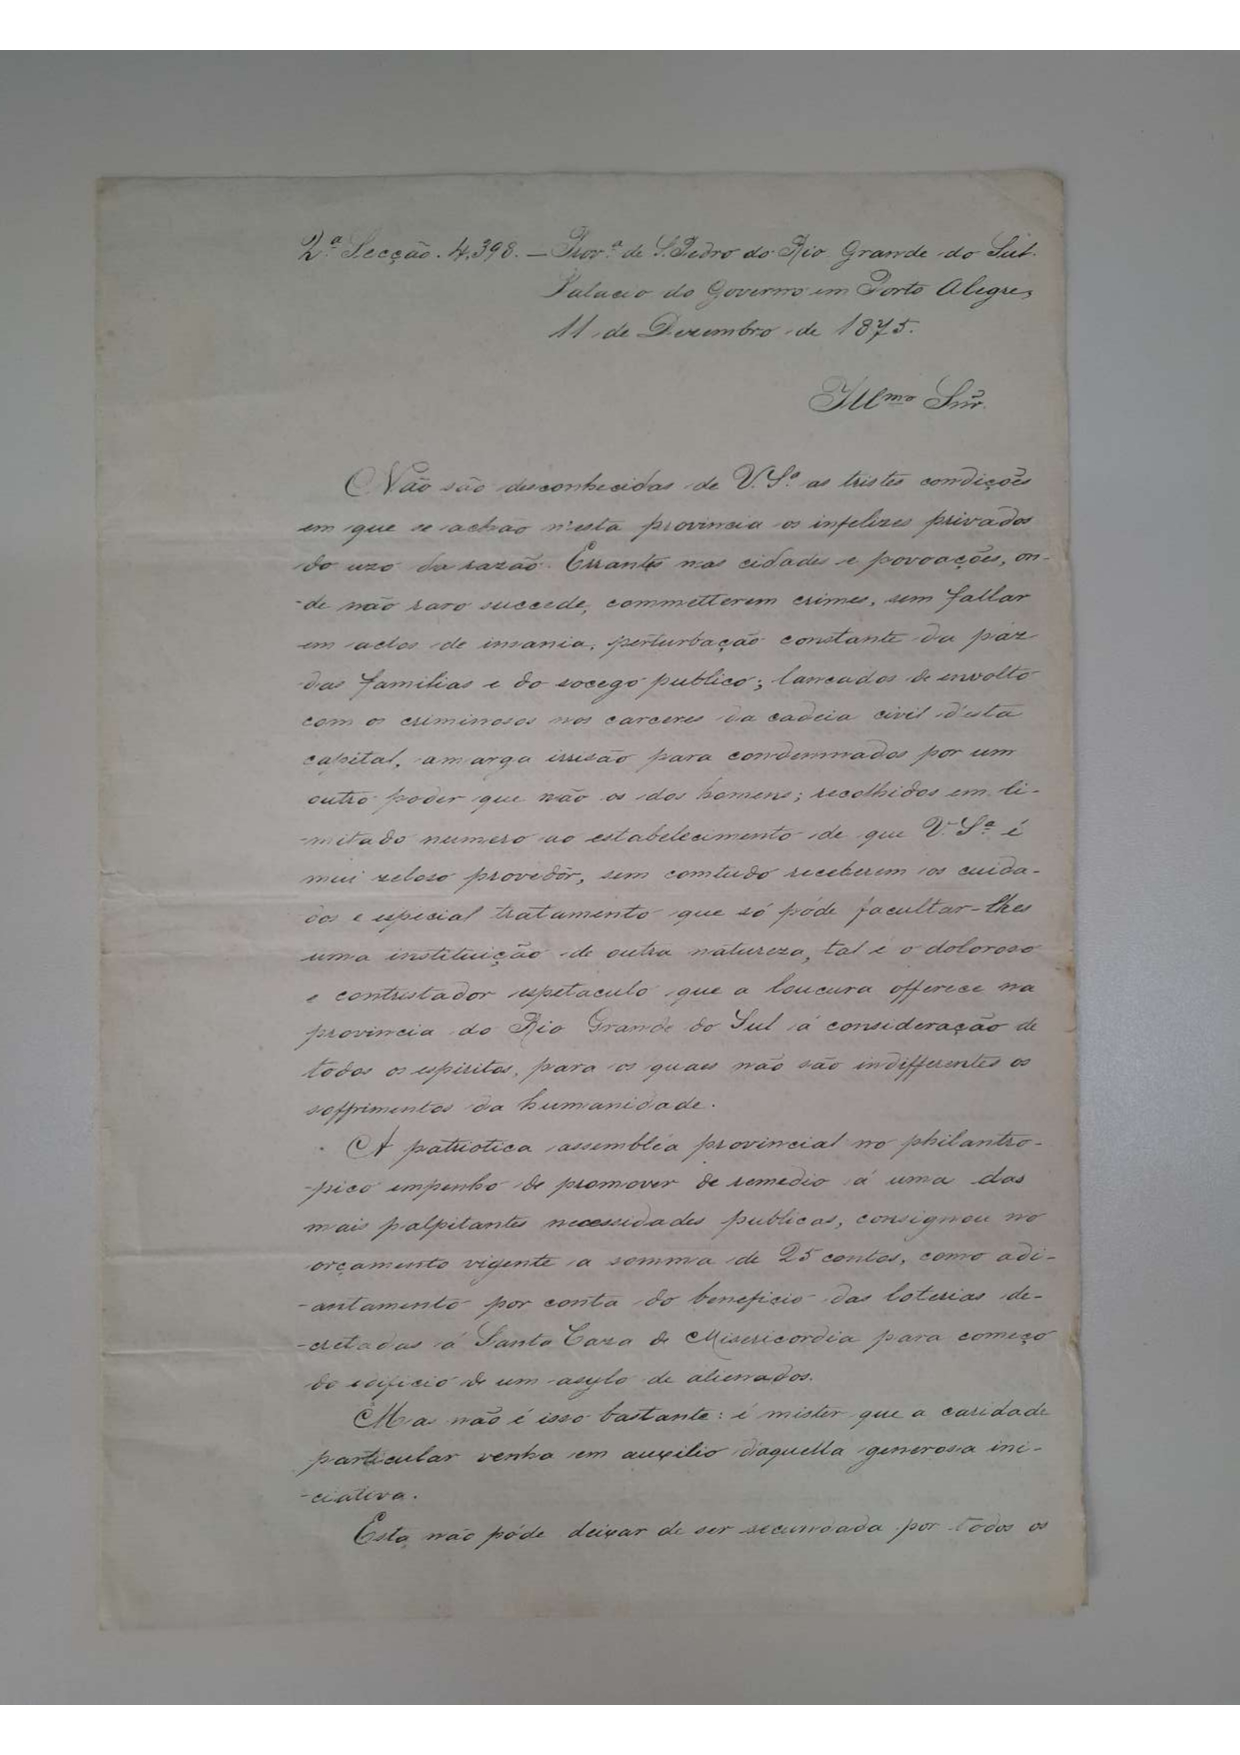 2ª Secção. 4.398. — Provª de S. Pedro do Rio Grande do Sul.
Palacio do Governo em Porto Alegre,
11 de Dezembro de 1875.
Illmo Snr.
Não são desconhecidas de V. Sª as tristes condições
em que se achão n'esta provincia os infelizes privados
do uzo da razão. Errantes nas cidades e povoações, on-
-de não raro succede, commetterem crimes, sem fallar
em actos de insania, perturbação constante da páz
das familias e do socego publico; lancados de envolto
com os criminosos nos carceres da cadeia civil d'esta
capital, amarga irrisão para condemnados por um
outro poder que não os dos homens; recolhidos em li-
-mitado numero ao estabelecimento de que V. Sª é
mui zeloso provedôr, sem comtudo receberem os cuida-
dos e especial tratamento que só póde facultar-lhes
uma instituição de outra natureza, tal é o doloroso
e contristador espetaculo que a loucura offerece na
provincia do Rio Grande do Sul á consideração de
todos os espiritos, para os quaes não são indifferentes os
soffrimentos da humanidade.
A patriotica assembléa provincial no philantro-
-pico empenho de promover de remedio á uma das
mais palpitantes necessidades publicas, consignou no
orçamento vigente a somma de 25 contos, como adi-
-antamento por conta do beneficio das loterias de-
-cretadas á Santa Caza de Misericordia para começo
do edificio de um asylo de alienados.
Mas não é isso bastante: é mister que a caridade
particular venha em auxilio d'aquella generosa ini-
-ciativa.
Esta não póde deixar de ser secundada por todos os